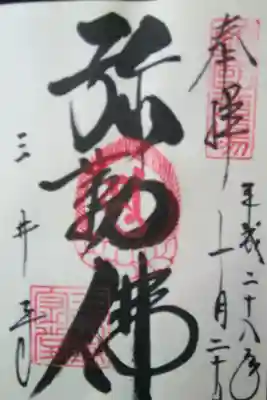 奉拝
平成二十八年
十一月二十
弥勒佛
三井寺